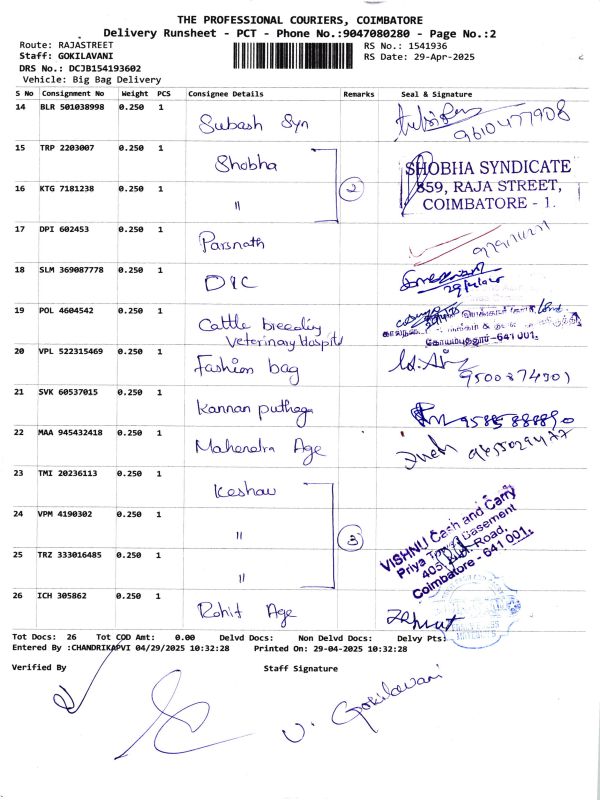 THE PROFESSIONAL COURIERS, COIMBATORE
Delivery Runsheet - PCT - Phone No.:9047080280 - Page No.:2
Route: RAJASTREET
Staff: GOKILAVANI
DRS No.: DCJB154193602
Vehicle: Big Bag Delivery
RS No.: 1541936
RS Date: 29-Apr-2025
S No Consignment No Weight PCS Consignee Details Remarks Seal & Signature
14 BLR 501038998 0.250 1 Subash Syn 9610477908
15 TRP 2203007 0.250 1 Shobha
2
SHOBHA SYNDICATE
859, RAJA STREET,
COIMBATORE - 1.
16 KTG 7181238 0.250 1 "
17 DPI 602453 0.250 1 Parsnath
18 SLM 369087778 0.250 1 DIC
19 POL 4604542 0.250 1 Cattle breeding
Veterinary Hospital
கோயம்புத்தூர்-641 001.
20 VPL 522315469 0.250 1 Fashion bag 9500874301
21 SVK 60537015 0.250 1 Kannan puthaga
22 MAA 945432418 0.250 1 Mahendra Age
23 TMI 20236113 0.250 1 Keshav
24 VPM 4190302 0.250 1 "
3
VISHNU Cash and Carry
Priya Basement
405, Road,
Coimbatore - 641 001.
25 TRZ 333016485 0.250 1 "
26 ICH 305862 0.250 1 Rohit Age
Tot Docs: 26 Tot COD Amt: 0.00 Delvd Docs: Non Delvd Docs: Delvy Pts:
Entered By :CHANDRIKAPVI 04/29/2025 10:32:28 Printed On: 29-04-2025 10:32:28
Verified By Staff Signature
V. Gokilavani